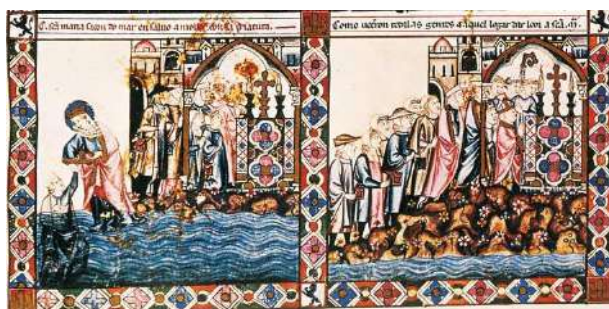 C. sc̄a maria sacou do mar en saluo a moller con sa criatura.
Como ueeron todallas gentes daquel logar dar loor a sc̄a. m̄.